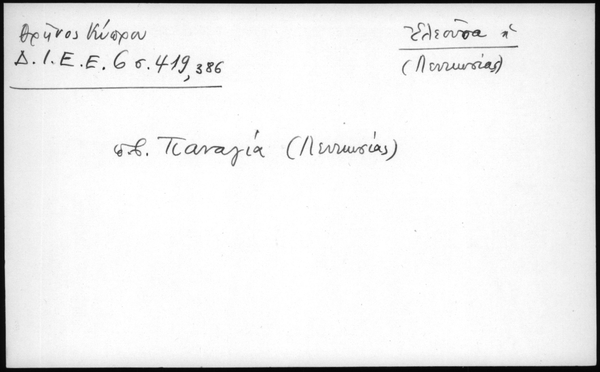 Θρῆνος Κύπρου
Δ.Ι.Ε.Ε. 6 σ. 419, 386
Ἐλεοῦσα ἡ
(Λευκωσίας)
πβ. Παναγία (Λευκωσίας)